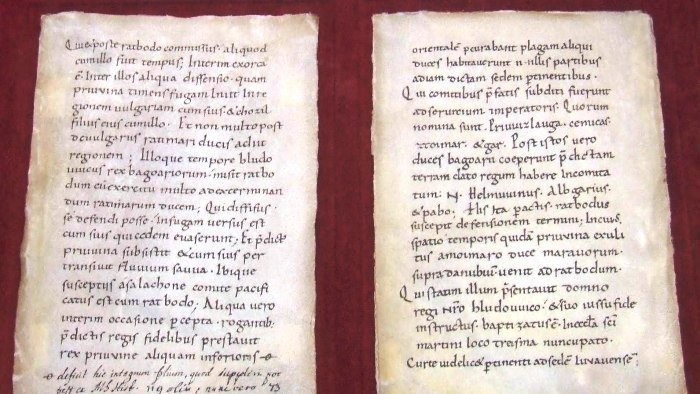 Qui & poste ratbodo commissus · aliquod
cum illo fuit tempus; Interim exorta
ẽ Inter illos aliqua dissensio · quam
priuuina timens fugam Iniit In re
gionem uulgariam cum suis & chozil
filius eius cum illo · Et non multo post
de uulgariis ratimari ducis adiit
regionem; Illoque tempore hludo
uuicus rex bagoariorum · misit ratbo
dum cũ exercitu multo ad exterminan
dum ratimarum ducem; Qui diffisus ·
se defendi posse · In fugam uersus est
cum suis qui cedem euaserunt; Et p̃dict
priuuina substitit & cum suis per
transiuit fluuium sauua · Ibique
susceptus a salachone comite pacifi
catus est cum ratbodo; Aliqua uero
interim occasione p̃cepta · rogantib;
p̃dictis regis fidelibus prestauit
rex priuuine aliquam inferioris
deficit hic integrum folium, quod
orientalẽ p̃curabant plagam aliqui
duces habitauerunt in illis partibus
ad iam dictam sedem ptinentibus ·
Qui comitibus p̃fatis subditi fuerunt
ad seruitium imperatoris · Quorum
nomina sunt · Priuuizlauga · cemicas ·
ztoimar · & gar · Post istos uero
duces bagoarii coeperunt p̃dictam
terram dato regum habere In comita
tum · N · Helmuuinus · Albgarius ·
& pabo · His Ita pactis · ratbodus
suscepit defensionem termini; In cuius
spatio temporis quidã priuuina exuli
tus a moimaro duce marauorum ·
supra danubium uenit ad ratbodum ·
Qui statim illum p̃sentauit domno
regi nr̃o hludouuico · & suo iussu fide
instructus · baptizatus ẽ · In eccl̃a sc̃i
martini loco treisma nuncupato ·
Curte uidelic& pertinenti ad sedem iuuauensẽ;